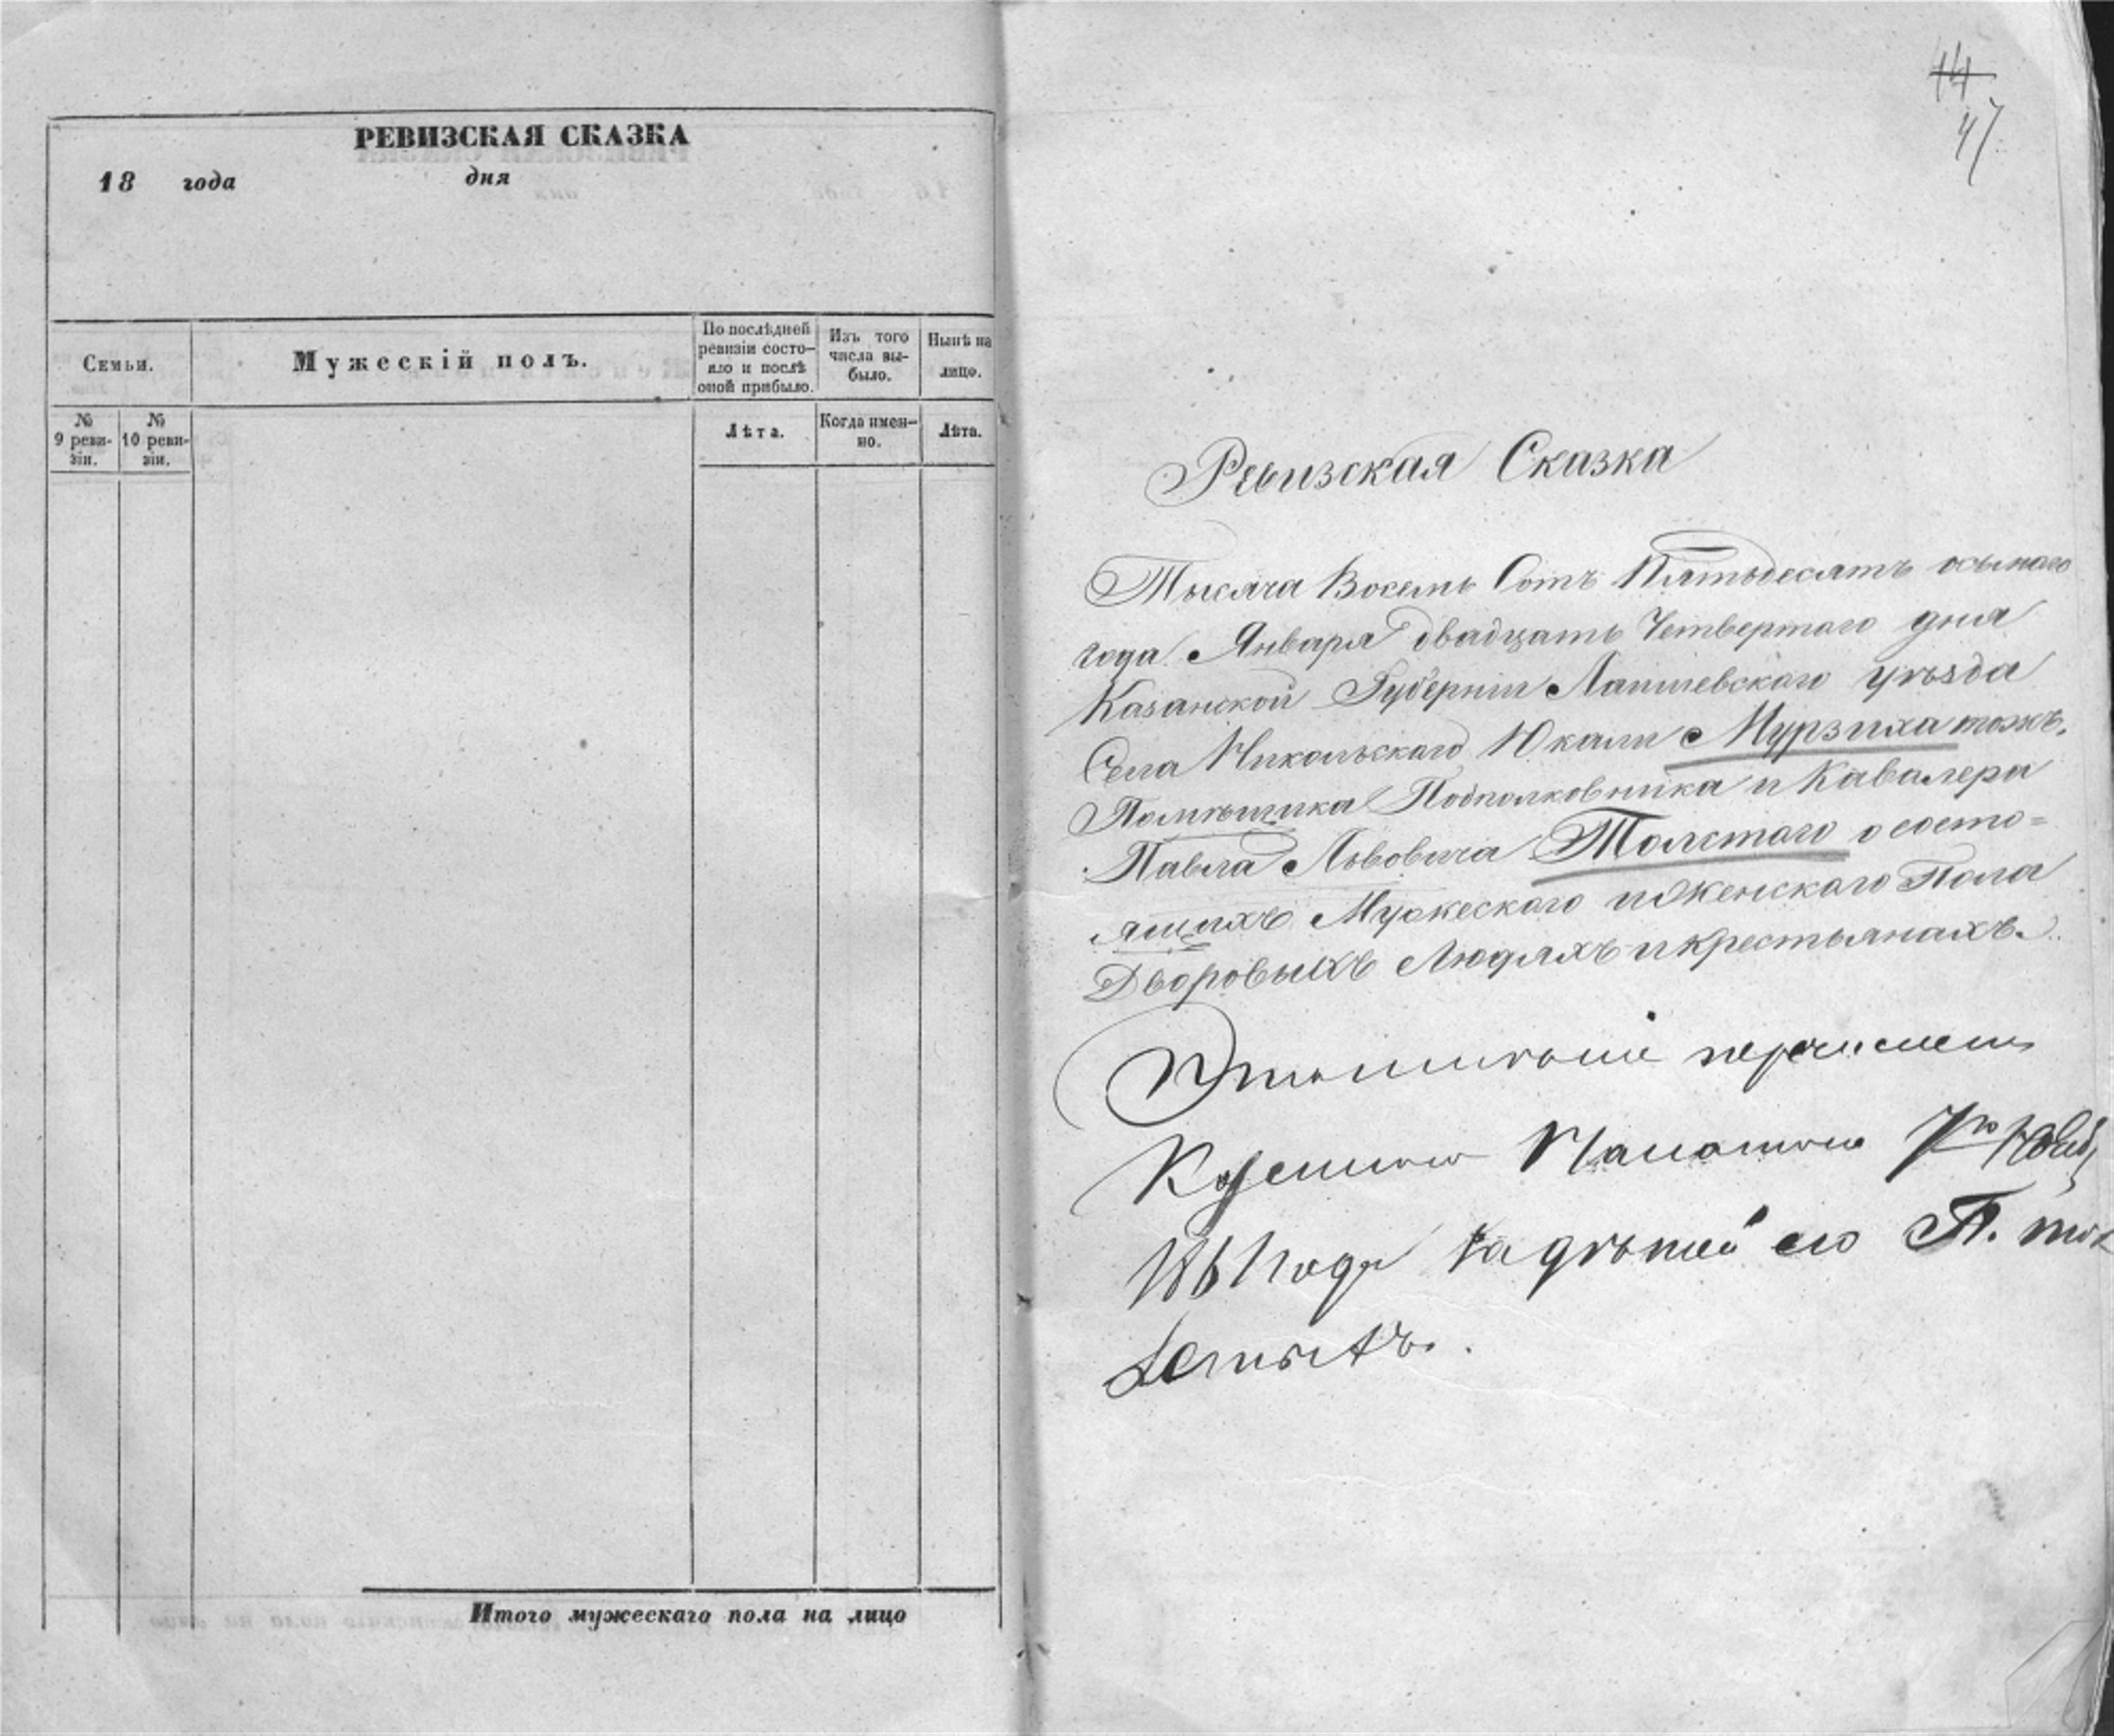 РЕВИЗСКАЯ СКАЗКА
18 года дня
Семьи.
Мужескій полъ.
По послѣдней ревизіи состо-
яло и послѣ
оной прибыло.
Изъ того
числа вы-
было.
Нынѣ на
лицо.
№ 9 реви-
зіи.
№ 10 реви-
зіи.
Лѣта.
Когда имен-
но.
Лѣта.
Итого мужескаго пола на лицо
44
47
Ревизская Сказка
Тысяча Восемь Сотъ Пятьдесятъ осьмаго
года Января двадцать Четвертаго дня
Казанской Губерніи Лаишевскаго уѣзда
Села Никольскаго Юкали Мурзиха тожъ.
Помѣщика Подполковника и Кавалера
Павла Львовича Толстаго о состо=
ящихъ Мужескаго и Женскаго Пола
Дворовыхъ Людяхъ и крестьянахъ.
Это имѣніе перечислено
Казенною Палатою
1861 года за дѣтей его П.